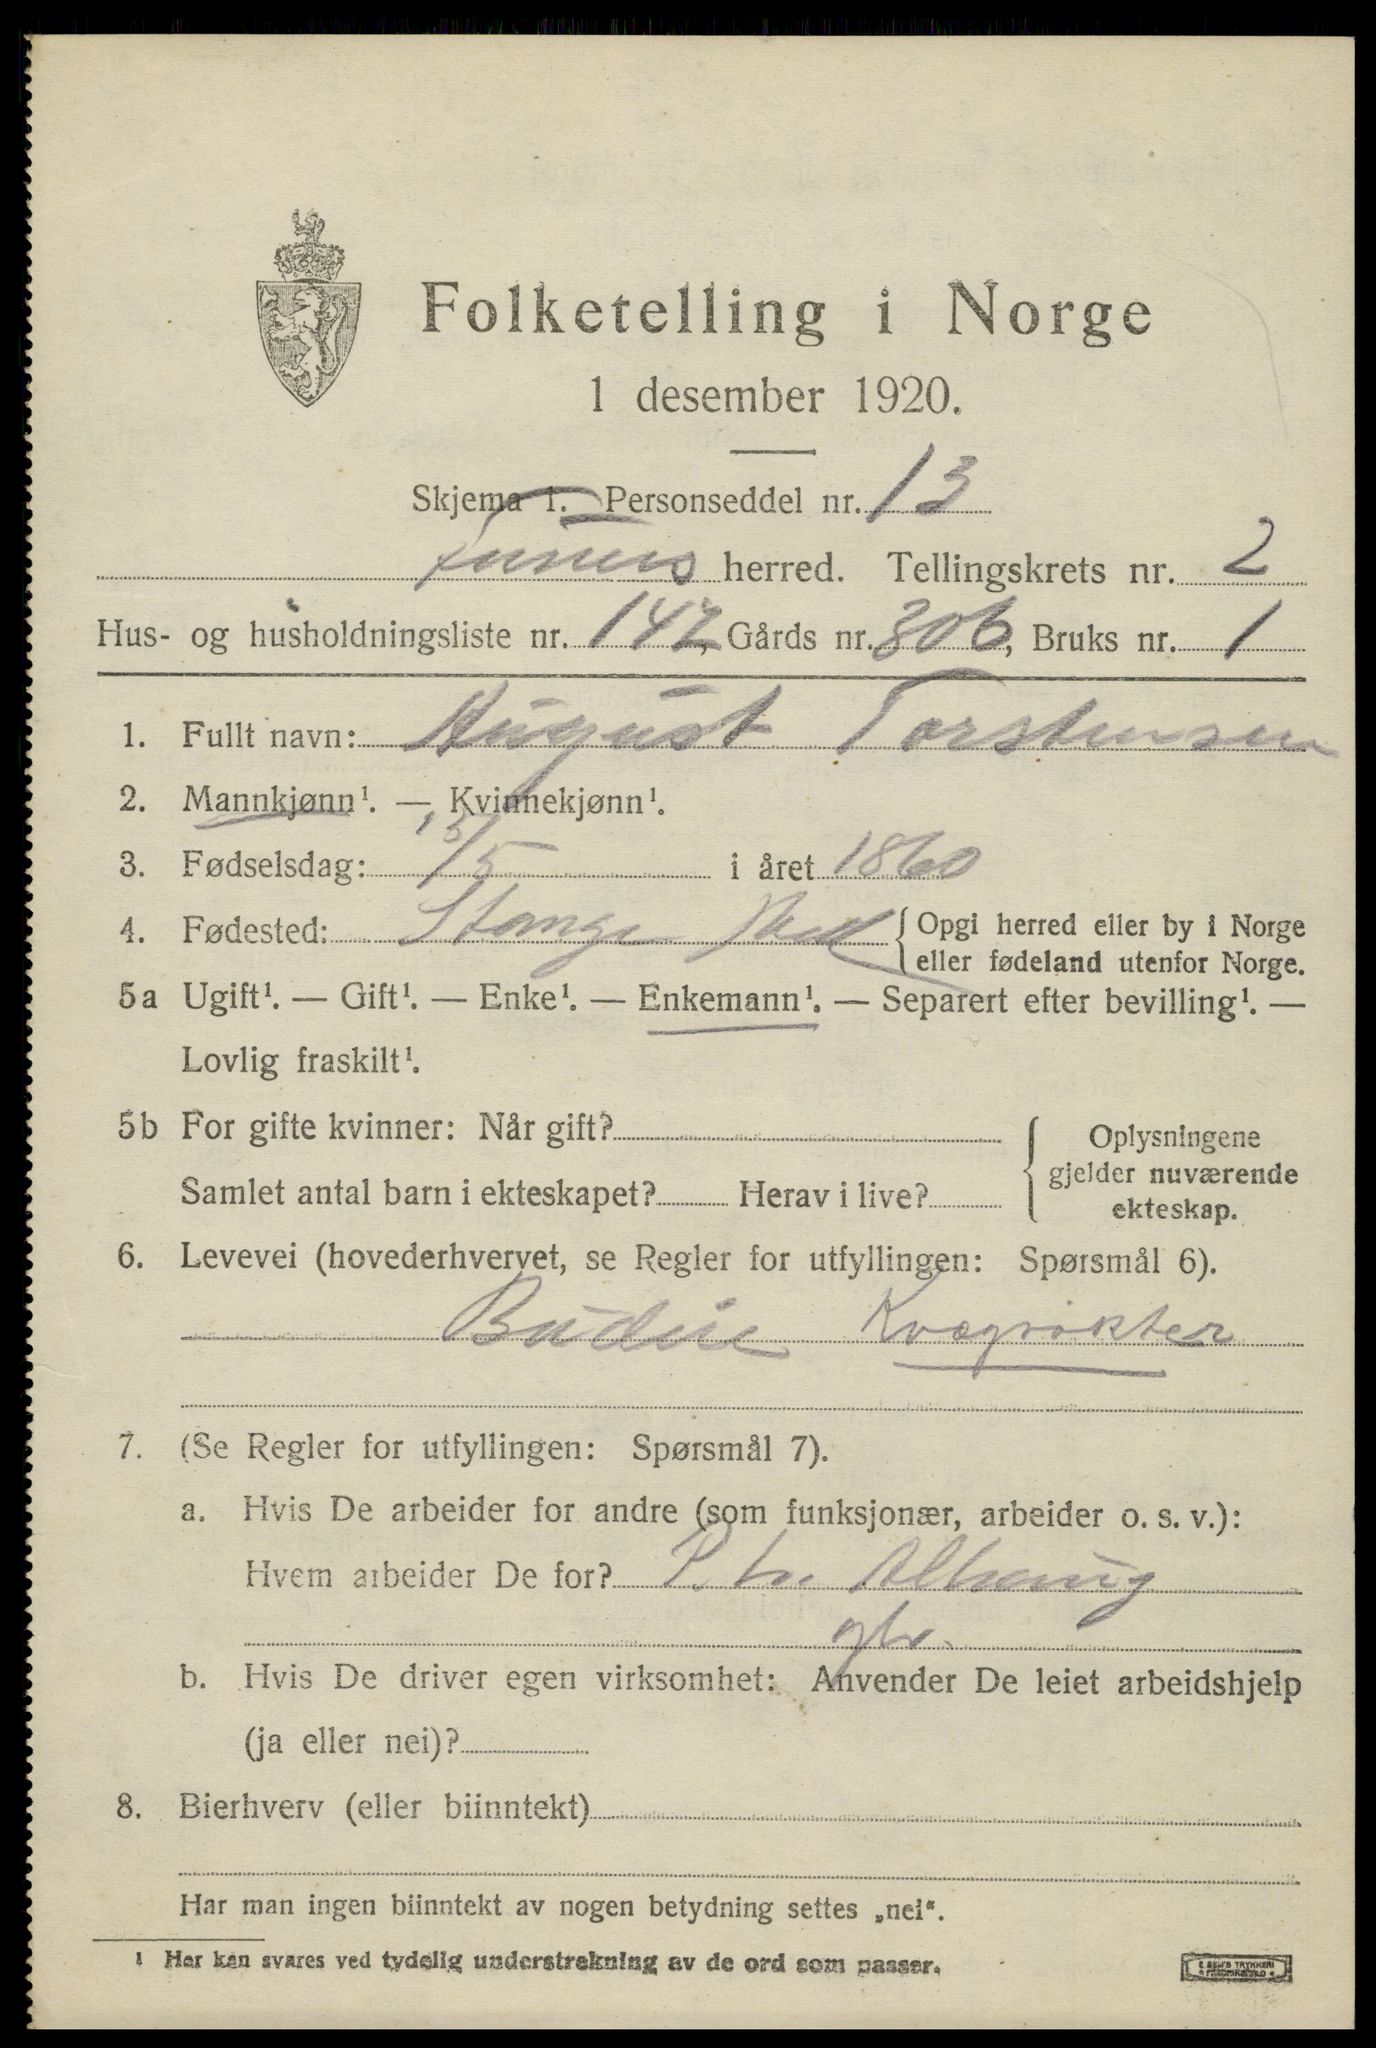 Folketelling i Norge
1 desember 1920.
Skjema 1. Personseddel nr. 13
Furnes herred. Tellingskrets nr. 2
Hus- og husholdningsliste nr. 147, Gårds nr. 306, Bruks nr. 1
1. Fullt navn: August Torstensen
2. Mannkjønn¹. — Kvinnekjønn¹.
3. Fødselsdag: 13/5 i året 1860
4. Fødested: Stange { Opgi herred eller by i Norge
eller fødeland utenfor Norge.
5a Ugift¹. — Gift¹. — Enke¹. — Enkemann¹. — Separert efter bevilling¹. —
Lovlig fraskilt¹.
5b For gifte kvinner: Når gift? { Oplysningene
gjelder nuværende
Samlet antal barn i ekteskapet? Herav i live? ekteskap.
6. Levevei (hovederhvervet, se Regler for utfyllingen: Spørsmål 6).
Budeie Kvægrøkter
7. (Se Regler for utfyllingen: Spørsmål 7).
a. Hvis De arbeider for andre (som funksjonær, arbeider o. s. v.):
Hvem arbeider De for? P. Alhaug
gbr.
b. Hvis De driver egen virksomhet: Anvender De leiet arbeidshjelp
(ja eller nei)?
8. Bierhverv (eller biinntekt)
Har man ingen biinntekt av nogen betydning settes „nei“.
¹ Her kan svares ved tydelig understrekning av de ord som passer.